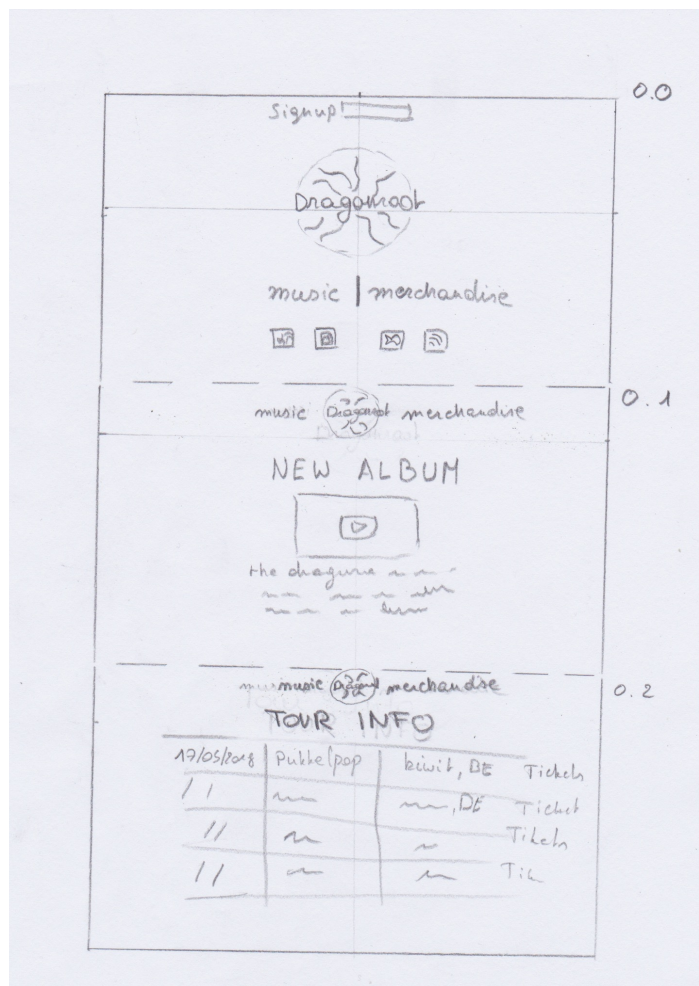 0.0
Signup!
Dragonroot
music | merchandise
0.1
music Dragonroot merchandise
NEW ALBUM
the
0.2
music merchandise
TOUR INFO
17/05/2018 Pukkelpop kiwit, BE Tickets
// , DE Ticket
// Tikets
// Tik